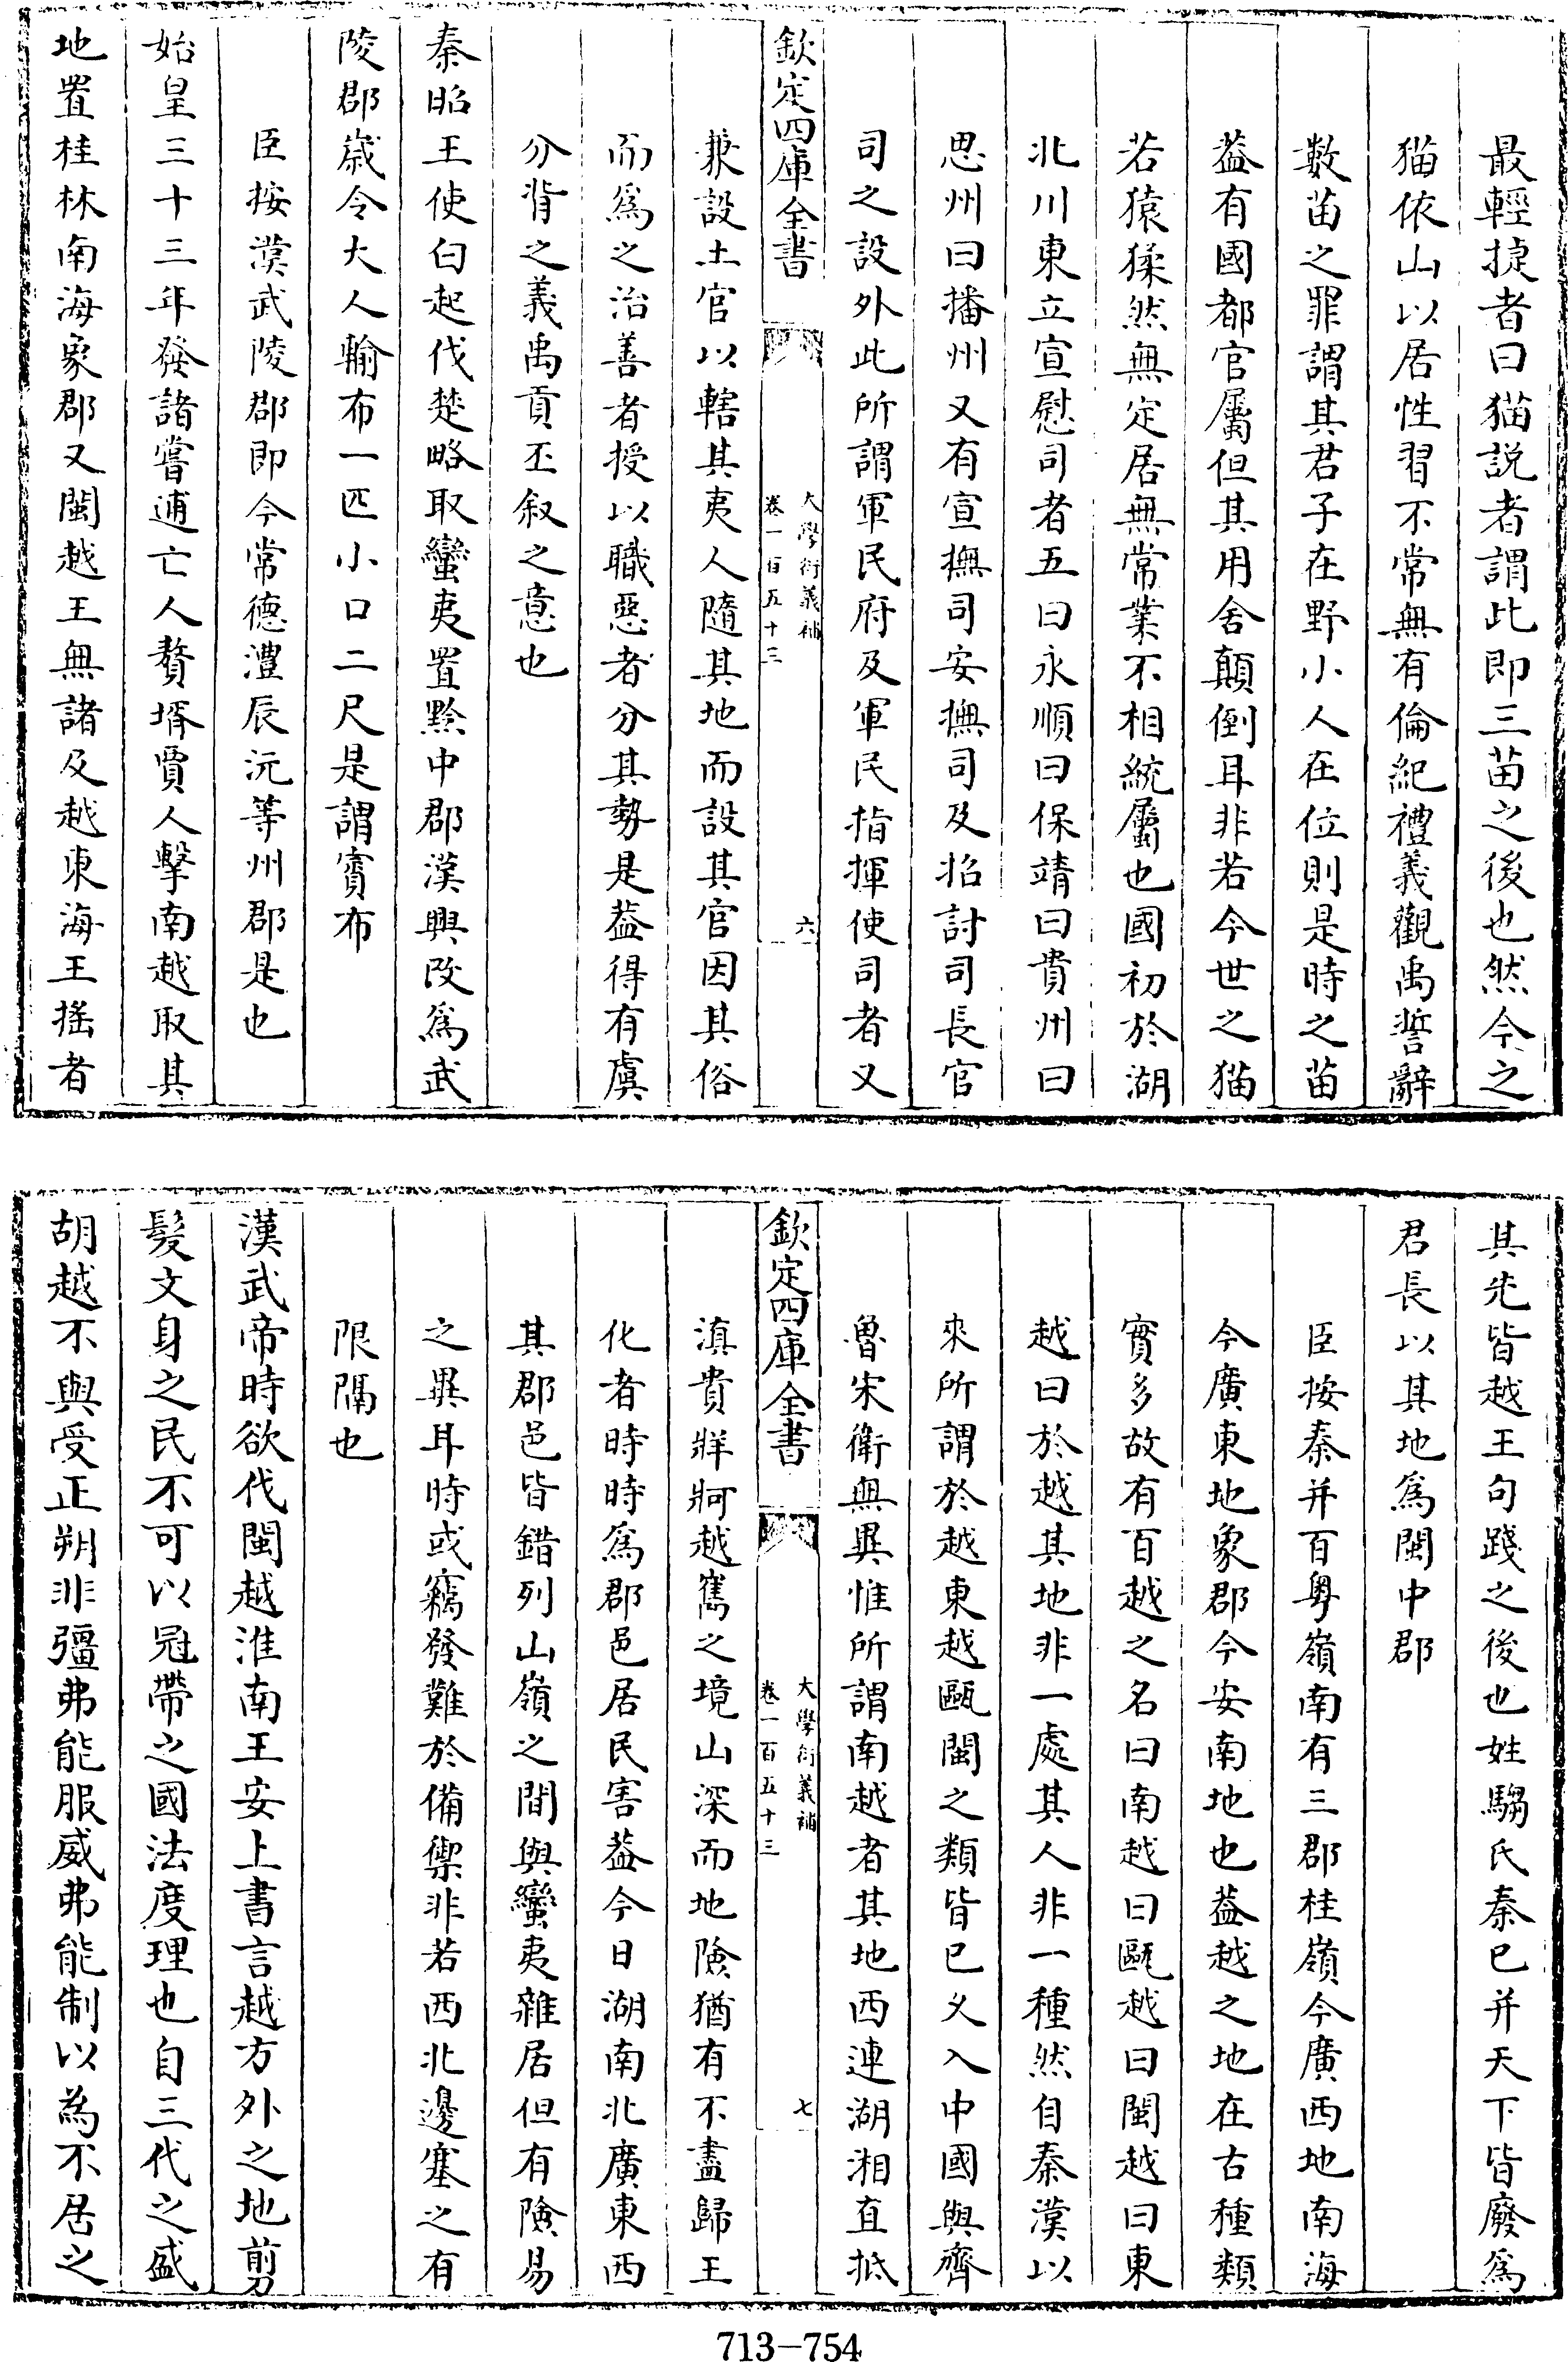 最輕捷者曰猫説者謂此即三苗之後也然今之
猫依山以居性習不常無有倫紀禮義觀禹誓辭
數苗之罪謂其君子在野小人在位則是時之苗
葢有國都官屬但其用舍顛倒耳非若今世之猫
若猿猱然無定居無常業不相統屬也國初於湖
北川東立宣慰司者五曰永順曰保靖曰貴州曰
思州曰播州又有宣撫司安撫司及招討司長官
司之設外此所謂軍民府及軍民指揮使司者又
欽定四庫全書
大學衍義補
卷一百五十三
六
兼設土官以轄其夷人隨其地而設其官因其俗
而爲之治善者授以職惡者分其勢是葢得有虞
分背之義禹貢丕叙之意也
秦昭王使白起伐楚略取蠻夷置黔中郡漢興改爲武
陵郡歲令大人輸布一匹小口二尺是謂賨布
臣按漢武陵郡即今常德澧辰沅等州郡是也
始皇三十三年發諸嘗逋亡人贅壻賈人擊南越取其
地置桂林南海象郡又閩越王無諸及越東海王揺者
其先皆越王句踐之後也姓騶氏秦已并天下皆廢爲
君長以其地爲閩中郡
臣按秦并百粤嶺南有三郡桂嶺今廣西地南海
今廣東地象郡今安南地也葢越之地在古種類
實多故有百越之名曰南越曰甌越曰閩越曰東
越曰於越其地非一處其人非一種然自秦漢以
來所謂於越東越甌閩之類皆已乂入中國與齊
魯宋衛無異惟所謂南越者其地西連湖湘直抵
欽定四庫全書
大學衍義補
卷一百五十三
七
滇貴牂牁越嶲之境山深而地險猶有不盡歸王
化者時時爲郡邑居民害葢今日湖南北廣東西
其郡邑皆錯列山嶺之間與蠻夷雜居但有險易
之異耳時或竊發難於備禦非若西北邊塞之有
限隔也
漢武帝時欲伐閩越淮南王安上書言越方外之地剪
髮文身之民不可以冠帶之國法度理也自三代之盛
胡越不與受正朔非彊弗能服威弗能制以為不居之
713-754